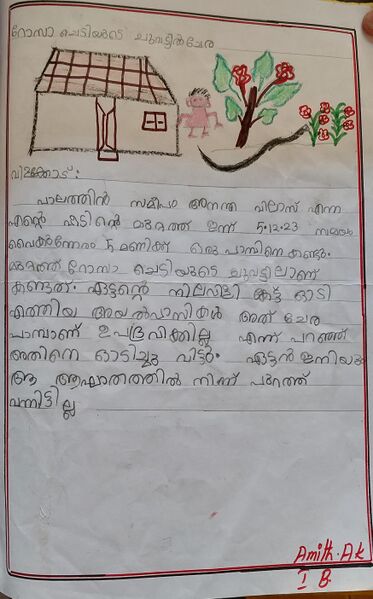 റോസാ ചെടിയുടെ ചുവട്ടിൽ ചേര
വിളക്കോട്:
പാലത്തിൻ സമീപം അനന്ത വിലാസ് എന്ന
എന്റെ വീടിന്റെ മുറ്റത്ത് ഇന്ന് 5.12.23 സമയം
വൈകുന്നേരം 5 മണിക്ക് ഒരു പാമ്പിനെ കണ്ടു.
മുറ്റത്ത് റോസാ ചെടിയുടെ ചുവട്ടിലാണ്
കണ്ടത്. ഏട്ടന്റെ നിലവിളി കേട്ട് ഓടി
എത്തിയ അയൽവാസികൾ അത് ചേര
പാമ്പാണ് ഉപദ്രവിക്കില്ല എന്ന് പറഞ്ഞ്
അതിനെ ഓടിച്ചു വിട്ടു. ഏട്ടൻ ഇനിയും
ആ ആഘാതത്തിൽ നിന്ന് പുറത്ത്
വന്നിട്ടില്ല
Amith.Ak
I B